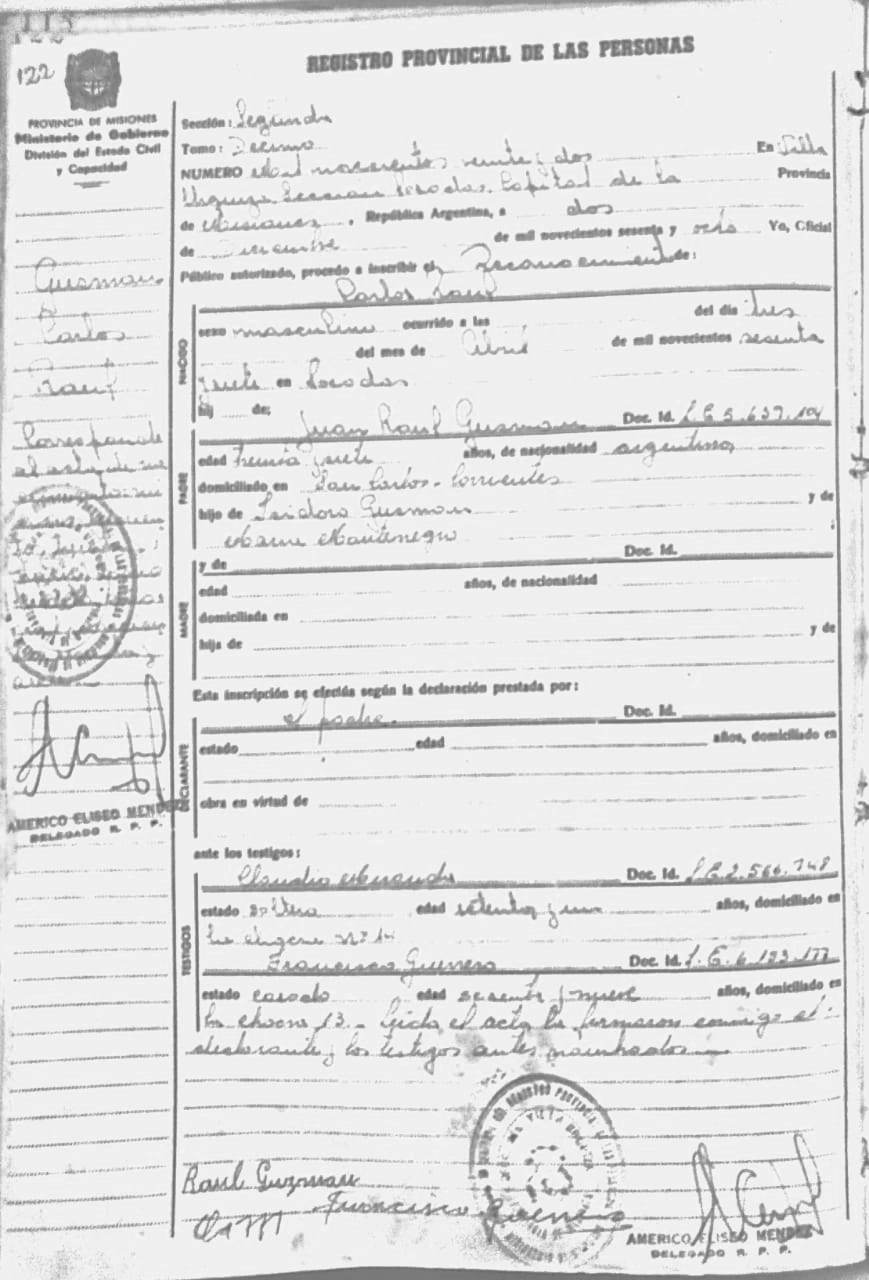 122
122
REGISTRO PROVINCIAL DE LAS PERSONAS
PROVINCIA DE MISIONES
Ministerio de Gobierno
División del Estado Civil
y Capacidad
Guzman
Carlos
Raul
Corresponde
el acta de
AMERICO ELISEO MENDEZ
DELEGADO R. P. P.
Sección: Segunda
Tomo: Decimo
NUMERO novecientos veinte y dos En Villa
Urquiza Seccion Posadas Capital de la Provincia
de Misiones, República Argentina, a dos
de Diciembre de mil novecientos sesenta y ocho Yo, Oficial
Público autorizado, procedo a inscribir el Reconocimiento de:
Carlos Raul
NACIDO
sexo masculino ocurrido a las del día tres
del mes de Abril de mil novecientos sesenta
y siete en Posadas
hij de:
PADRE
Juan Raul Guzman Doc. Id. L.E 5.637.
edad treinta y siete años, de nacionalidad argentino
domiciliado en San Carlos - Corrientes
hijo de Isidoro Guzman y de
Montenegro
MADRE
y de Doc. Id.
edad años, de nacionalidad
domiciliada en
hija de y de
Esta inscripción se efectúa según la declaración prestada por:
DECLARANTE
el padre. Doc. Id.
estado edad años, domiciliado en
obra en virtud de
ante los testigos:
TESTIGOS
Claudio Miranda Doc. Id. L.E. 2.566.748
estado soltero edad setenta y un años, domiciliado en
Nº 14
Francisco Guerrero Doc. Id. L.E. 6.123.177
estado casado edad sesenta y nueve años, domiciliado en
la chacra 13.- Leida el acta la firmaron conmigo el
declarante y los testigos antes nombrados
Raul Guzman
Francisco Guerrero
AMERICO ELISEO MENDEZ
DELEGADO R. P. P.